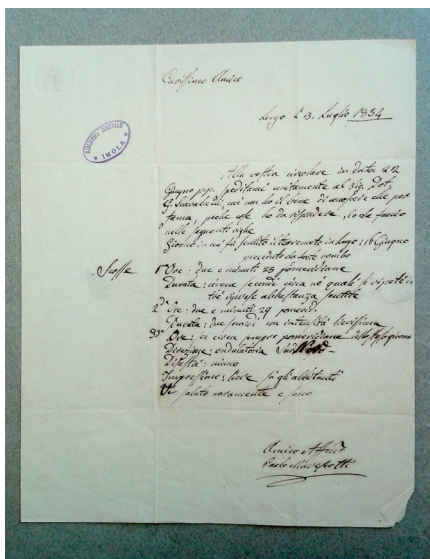 Carissimo Amico
Lugo li 3. Luglio 1884
BIBLIOTECA COMUNALE
* IMOLA *
Alla vostra circolare in data 22
Giugno pp. unitamente al Sig. Dott.
G. che
ho da rispondere, lo che faccio
nelle seguenti righe
Giorno in cui fu sentito il terremoto in Lugo: 16 Giugno
preceduto da forte rombo
Scosse 1ª Ore: due e minuti 25 pomeridiane
Durata: secondi circa ne' quali si
tre riprese abbastanza sentite
2ª Ore: due e minuti 29 pomerid.
Durata: due secondi con intensità lievissima
3ª Ore: circa pomeridiane dello stesso giorno
Direzione: ondulatoria Sud Nord
Disastri: niuno
Impressione: lieve fra gli abitanti
Vi saluto caramente e sono
Amico
Paolo